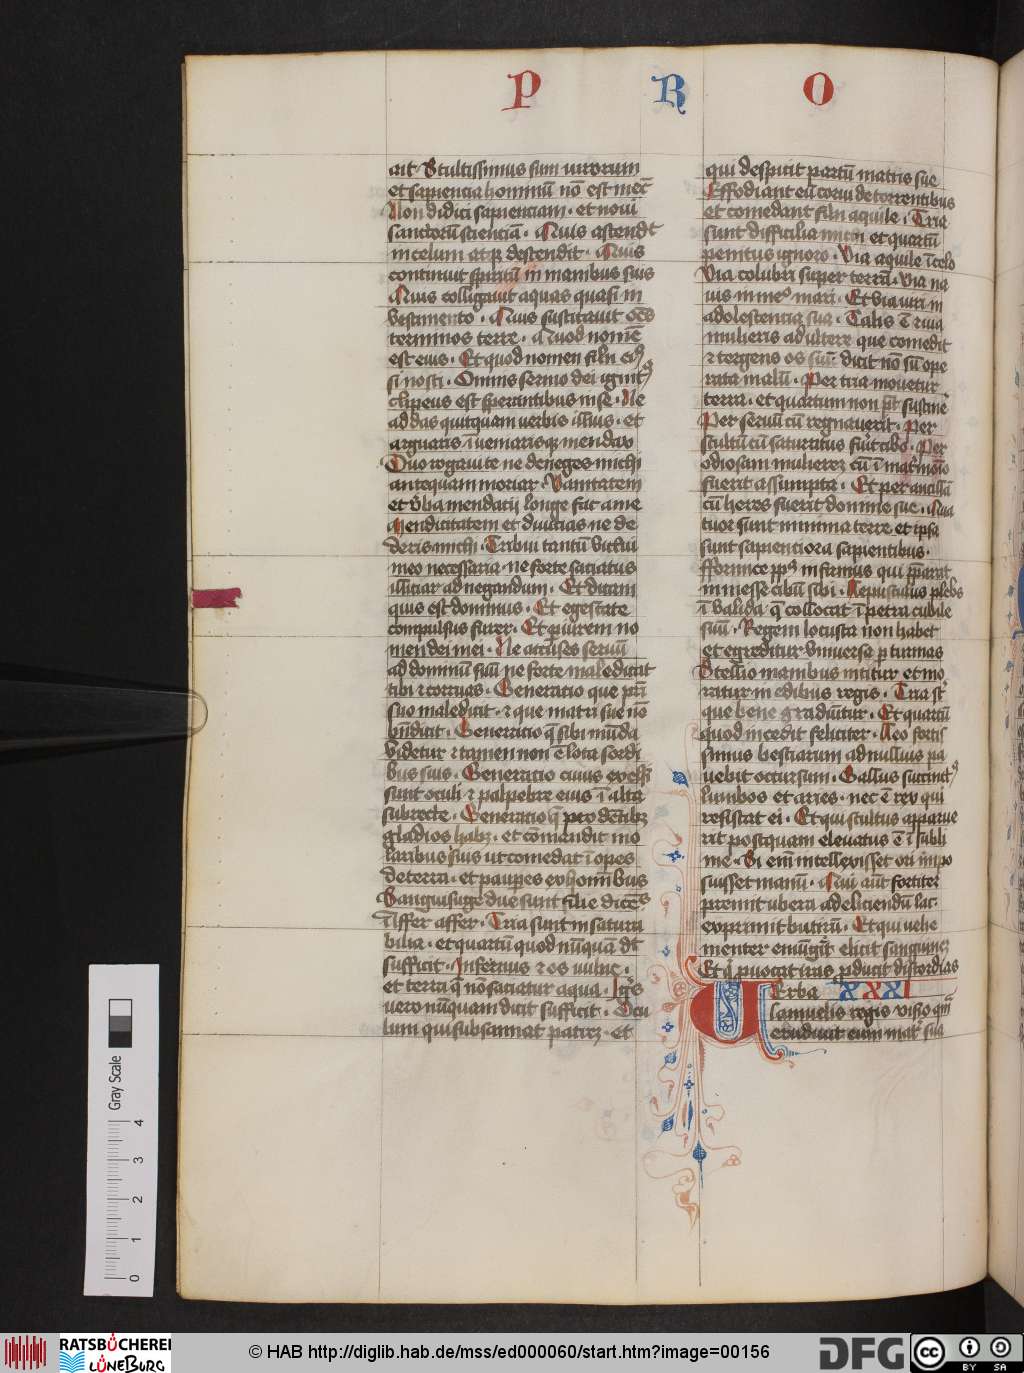 P R O
ait · Stultissimus sum virorum
et sapiencia hominū nō est mecū
Non didici sapienciam · et noui
sanctorū scienciā · Quis ascendit
in celum atqꝫ descendit · Quis
continuit spiritū in manibus suis
Quis colligauit aquas quasi in
vestimento · Quis suscitauit oēs
terminos terre · Quod nomē
est eius · Et quod nomen filii eiꝰ
si nosti · Omnis sermo dei ignitꝰ
clipeus est sperantibus in se · Ne
addas quitquam verbis illius · et
arguaris īueniarisqꝫ mendax
Duo rogaui te ne deneges michi
antequam moriar · Vanitatem
et v̄ba mendacij longe fac a me
Mendicitatem et diuicias ne de
deris michi · Tribui tantū victui
meo necessaria · ne forte saciatus
illiciar ad negandum · Et dicam
quis est dominus · Et egestate
compulsus furer · Et ꝑiurem no
men dei mei · Ne accuses seruū
ad dominū suū ne forte maledicat
tibi ⁊ corruas · Generatio que pr̄i
suo maledicit · ⁊ que matri sue nō
bn̄dicit · Generatio q̄ sibi mūda
videtur ⁊ tamen non ē lota sordi
bus suis · Generatio cuius excelsi
sunt oculi ⁊ palpebre eius ī alta
subrecte · Generatio q̄ pro dētibꝫ
gladios habꝫ · et cōmandit mo
laribus suis ut comedat īopes
de terra · et pauꝑes ex hominibus
Sanguisuge due sunt filie dicētes
Affer affer · Tria sunt in satura
bilia · et quartū quod nūquā dt
sufficit · Infernus ⁊ os vulue ·
et terra q̄ nō saciatur aqua · Igīs
vero nūnquam dicit sufficit · Ocu
lum qui subsannat patrē · et
qui despicit partū matris sue
Effodiant eū corui de torrentibus
et comedant filii aquile · Tria
sunt difficilia michi et quartū
penitus ignoro · Via aquile ī celo
Via colubri super terrā · via na
uis in meꝰ mari · Et via viri in
adolescencia sua · Talis ē ⁊ via
mulieris adultere que comedit
⁊ tergens os suū · dicit nō sū ope
rata malū · Per tria mouetur
terra · et quartum non pt̄ sustinē
Per seruū cū regnauerit · Per
stultū cū saturatus fuit cibo · Per
odiosam mulierē cū ī mat̄monio
fuerit assumpta · Et per ancillā
cū heres fuerit domine sue · Qua
tuor sunt minima terre et ipsa
sunt sapienciora sapientibus ·
fformice ppꝰ infirmus qui pp̄arat
in messe cibū sibi · Lepusculus plebs
ī valida q̄ collocat ī petra cubile
suū · Regem locusta non habet
et egreditur vniuersa ꝑ turmas
Stellio manibus nititur et mo
ratur in edibus regis · Tria st̄
que bene gradiūtur · Et quartū
quod incedit feliciter · Leo fortis
simus bestiarum ad nullius pa
uebit occursum · Gallus succinctꝰ
lumbos et aries · nec ē rex qui
resistat ei · Et qui stultus apparue
rit postquam eleuatus ē ī subli
me · Si enī intellexisset ori īmpo
suisset manū · Qui aūt fortiter
premit ubera ad eliciendū lac
exprimit butirū · Et qui vehe
menter emūgit elicit sanguinē
Et q̄ ꝓuocat iras ꝓducit discordias
Verba XXXI
lamuelis regis visio qua
erudiuit eum mat̄ sua
Gray Scale
4
3
2
1
0
RATSBÜCHEREI
LÜNEBURG
© HAB http://diglib.hab.de/mss/ed000060/start.htm?image=00156
DFG
cc
BY SA